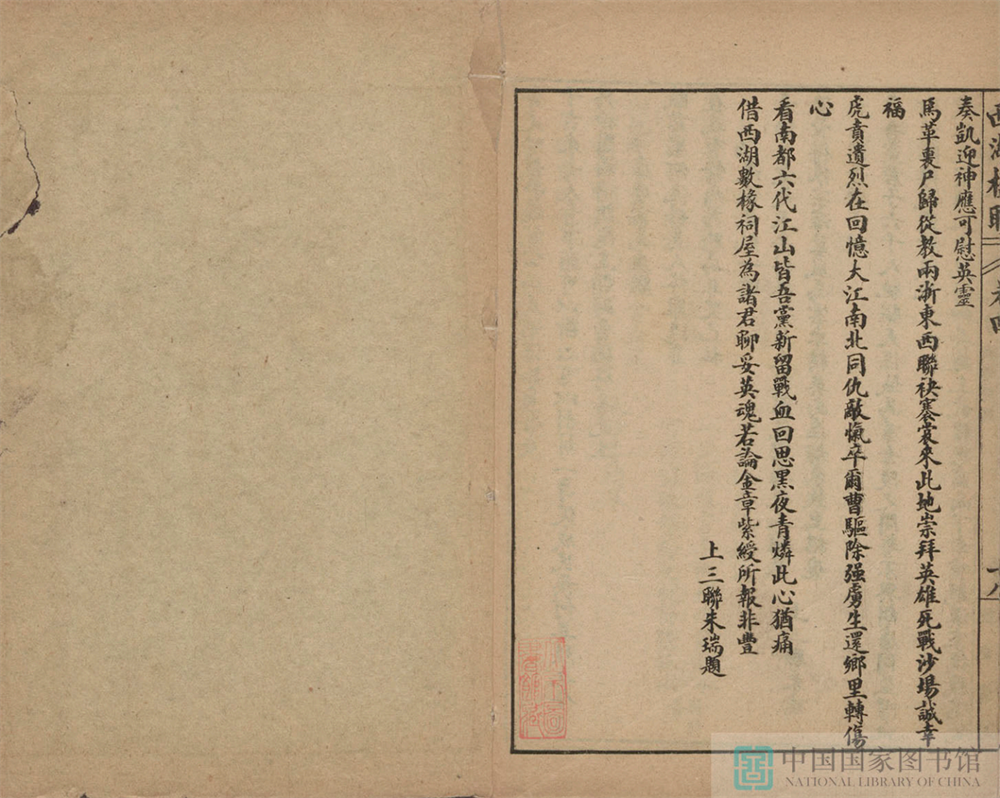 西湖楹聯 卷四
奏凱迎神應可慰英靈
馬革裹尸歸從教兩浙東西聯袂褰裳來此地崇拜英雄死戰沙場誠幸
福
虎賁遺烈在回憶大江南北同仇敵愾卒爾曹驅除强虜生還鄉里轉傷
心
看南都六代江山皆吾黨新留戰血回思黑夜青燐此心猶痛
借西湖數椽祠屋為諸君聊妥英魂若論金章紫綬所報非豐
上三聯朱瑞題
中国国家图书馆
NATIONAL LIBRARY OF CHINA